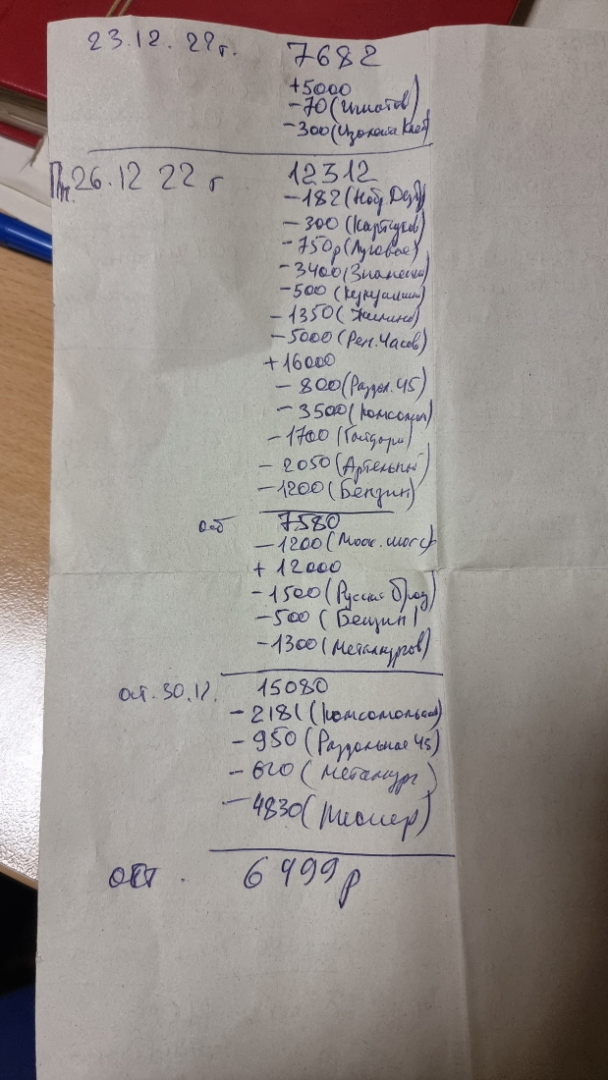 23.12.22г. 7682
+5000
-70 (Ипатов)
-300 (Изолента Клей)
Пн. 26.12 22г 12312
-182 (
-300 (Картузов)
-750р (Луговое)
-3400 (
-500 (
-1350 (Жилино)
-5000 (Рем. Часов)
+16000
-800 (Раздол. 45)
-3500 (Комсомол)
-1700 (Гайдара)
-2050 (Артельный)
-1200 (Бензин)
ост 7580
-1200 (Моск. шоссе)
+12000
-1500 (Русский Брод)
-500 (Бензин)
-1300 (Металлургов)
ост. 30.12. 15080
-2181 (Комсомольская)
-950 (Раздольная 45)
-620 (Металург)
-4830 (
ост. 6499р